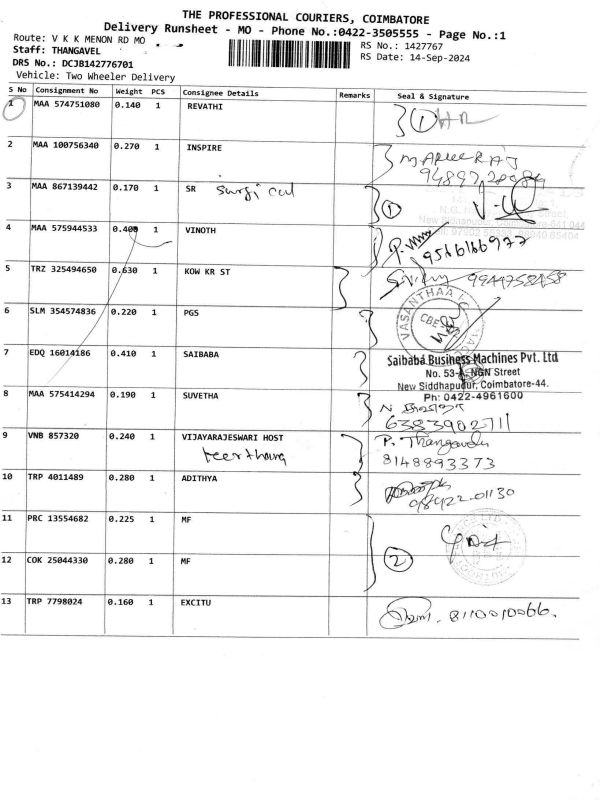 THE PROFESSIONAL COURIERS, COIMBATORE
Delivery Runsheet - MO - Phone No.:0422-3505555 - Page No.:1
Route: V K K MENON RD MO
RS No.: 1427767
Staff: THANGAVEL
RS Date: 14-Sep-2024
DRS No.: DCJB142776701
Vehicle: Two Wheeler Delivery
S No Consignment No Weight PCS Consignee Details Remarks Seal & Signature
1 MAA 574751080 0.140 1 REVATHI 1
2 MAA 100756340 0.270 1 INSPIRE
3 MAA 867139442 0.170 1 SR Surgical 1
4 MAA 575944533 0.400 1 VINOTH 9566166977
5 TRZ 325494650 0.630 1 KOW KR ST 9944758458
VASANTHAA
CBE
6 SLM 354574836 0.220 1 PGS
7 EDQ 16014186 0.410 1 SAIBABA
Saibaba Business Machines Pvt. Ltd
No. 53-A, NGN Street
New Siddhapudur, Coimbatore-44.
Ph: 0422-4961600
8 MAA 575414294 0.190 1 SUVETHA
6383902711
9 VNB 857320 0.240 1 VIJAYARAJESWARI HOST
P. Thangavelu
8148893373
10 TRP 4011489 0.280 1 ADITHYA
98422-01130
11 PRC 13554682 0.225 1 MF
12 COK 25044330 0.280 1 MF 2
13 TRP 7798024 0.160 1 EXCITU 8110010066.